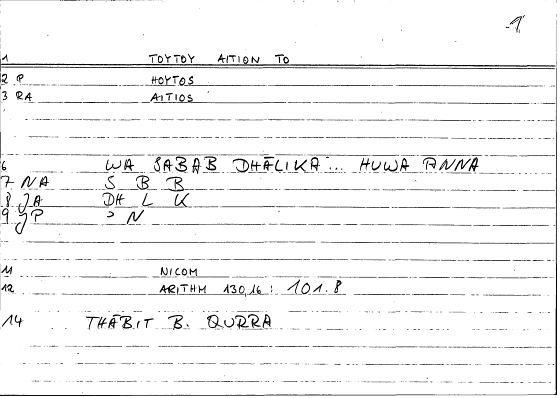 -1
1 TOYTOY AITION TO
2 P HOYTOS
3 RA AITIOS
6 WA SABAB DHĀLIKA... HUWA ANNA
7 NA S B B
8 JA DH L K
9 JP ʾ N
11 NICOM
12 ARITHM 130,16 : 101.8
14 THĀBIT B. QURRA